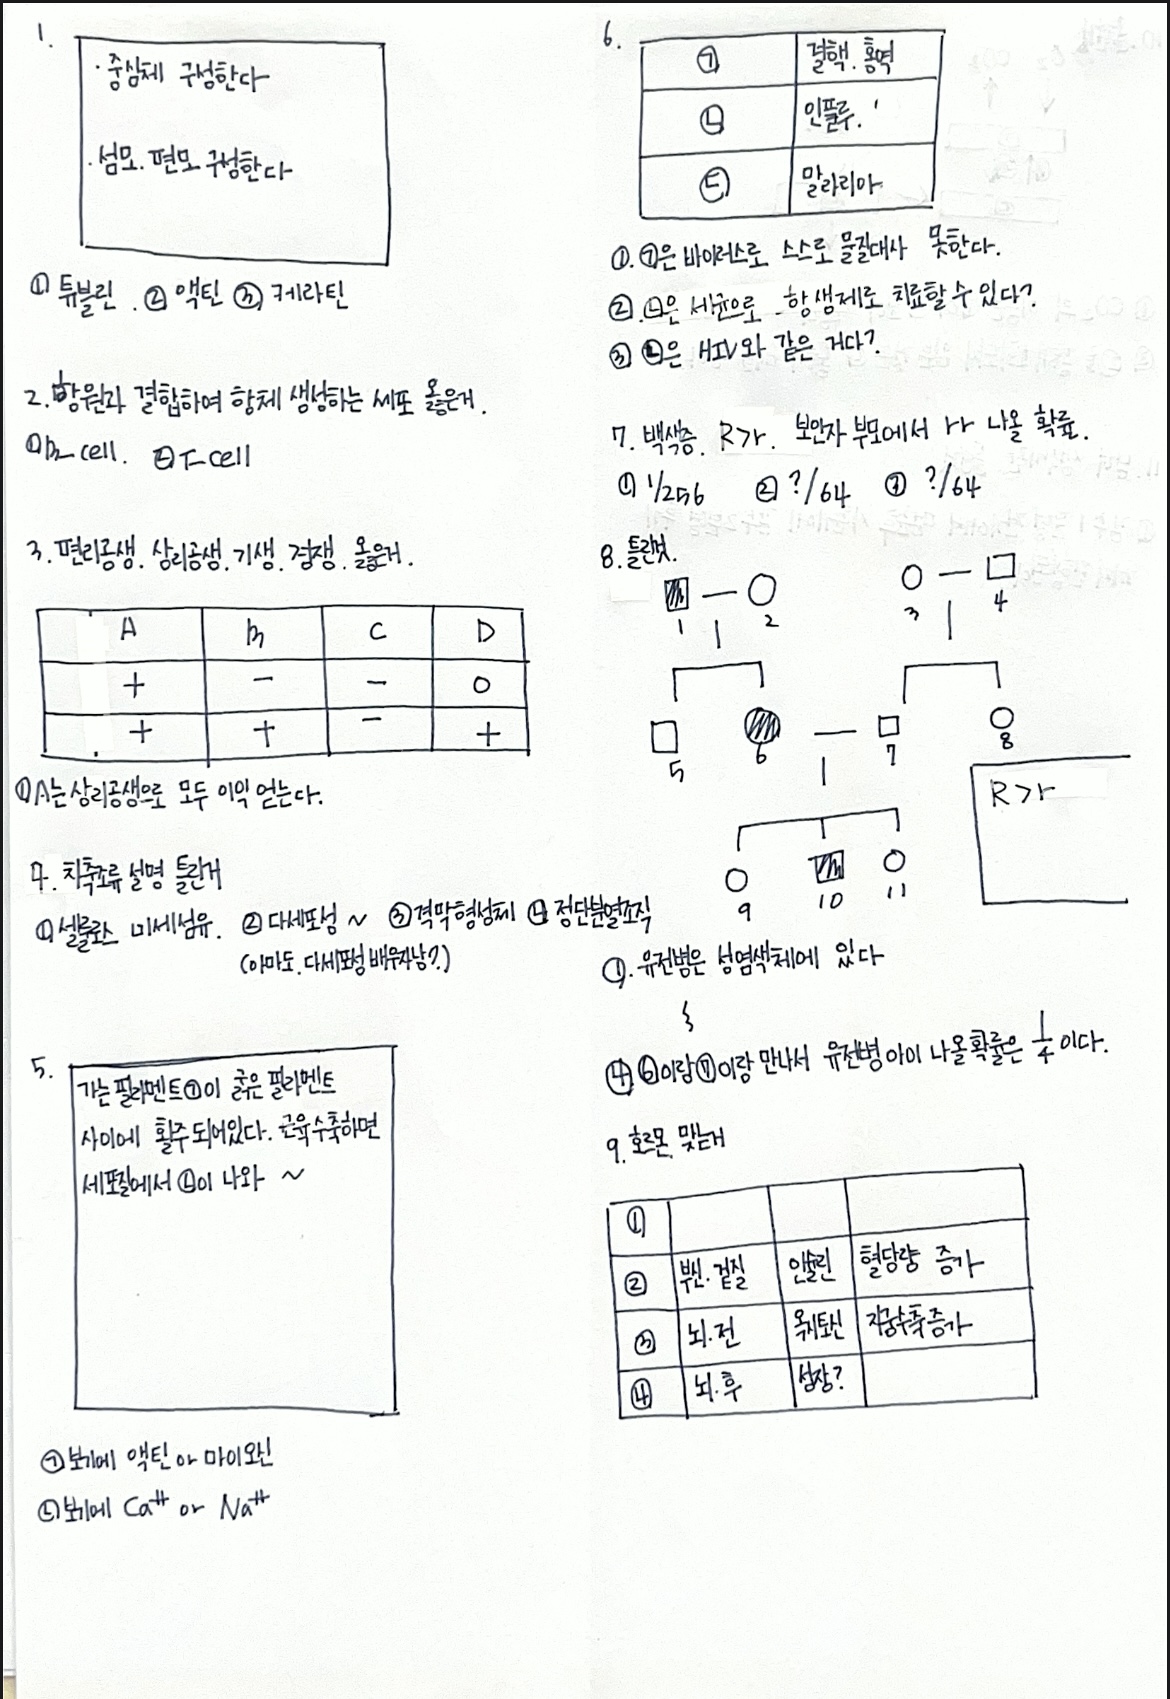 1.
· 중심체 구성한다
· 섬모. 편모 구성한다
① 튜블린. ② 액틴 ③ 케라틴
2. 항원과 결합하여 항체 생성하는 세포 옳은거.
① B-cell. ② T-cell
3. 편리공생. 상리공생. 기생. 경쟁. 옳은거.
A B C D
+ - - 0
+ + - +
① A는 상리공생으로 모두 이익 얻는다.
4. 차축조류 설명 틀린거
① 셀룰로스 미세섬유. ② 다세포성 ~ ③ 격막형성체 ④ 정단분열조직
(아마도. 다세포성 배우자낭?)
5.
가는 필라멘트 ㉠이 굵은 필라멘트
사이에 활주 되어있다. 근육수축하면
세포질에서 ㉡이 나와 ~
㉠ 보기에 액틴 or 마이오신
㉡ 보기에 Ca++ or Na++
6.
㉠ 결핵. 홍역
㉡ 인플루.
㉢ 말라리아
①. ㉠은 바이러스로 스스로 물질대사 못한다.
②. ㉡은 세균으로 항생제로 치료할 수 있다?
③ ㉡은 HIV와 같은 거다?
7. 백색증. R>r. 보인자 부모에서 rr 나올 확률.
① 1/256 ② ?/64 ③ ?/64
8. 틀린것.
1 2 3 4
5 6 7 8
R>r
9 10 11
①. 유전병은 성염색체에 있다
④ ⑥이랑 ⑦이랑 만나서 유전병 아이 나올 확률은 1/4 이다.
9. 호르몬. 맞는거
①
② 부신.겉질 인슐린 혈당량 증가
③ 뇌.전 옥시토신 자궁수축 증가
④ 뇌.후 성장?